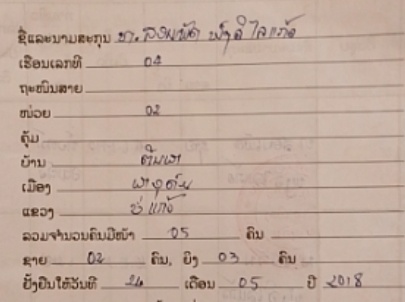 ຊື່ແລະນາມສະກຸນ ທ.
ເຮືອນເລກທີ 04
ຖະໜົນສາຍ
ໜ່ວຍ 02
ຄຸ້ມ
ບ້ານ
ເມືອງ ຜາອຸດົມ
ແຂວງ ບໍ່ແກ້ວ
ລວມຈຳນວນຄົນມີໜ້າ 05 ຄົນ
ຊາຍ 02 ຄົນ, ຍິງ 03 ຄົນ
ຢັ້ງຢືນໃຫ້ວັນທີ 24 ເດືອນ 05 ປີ 2018